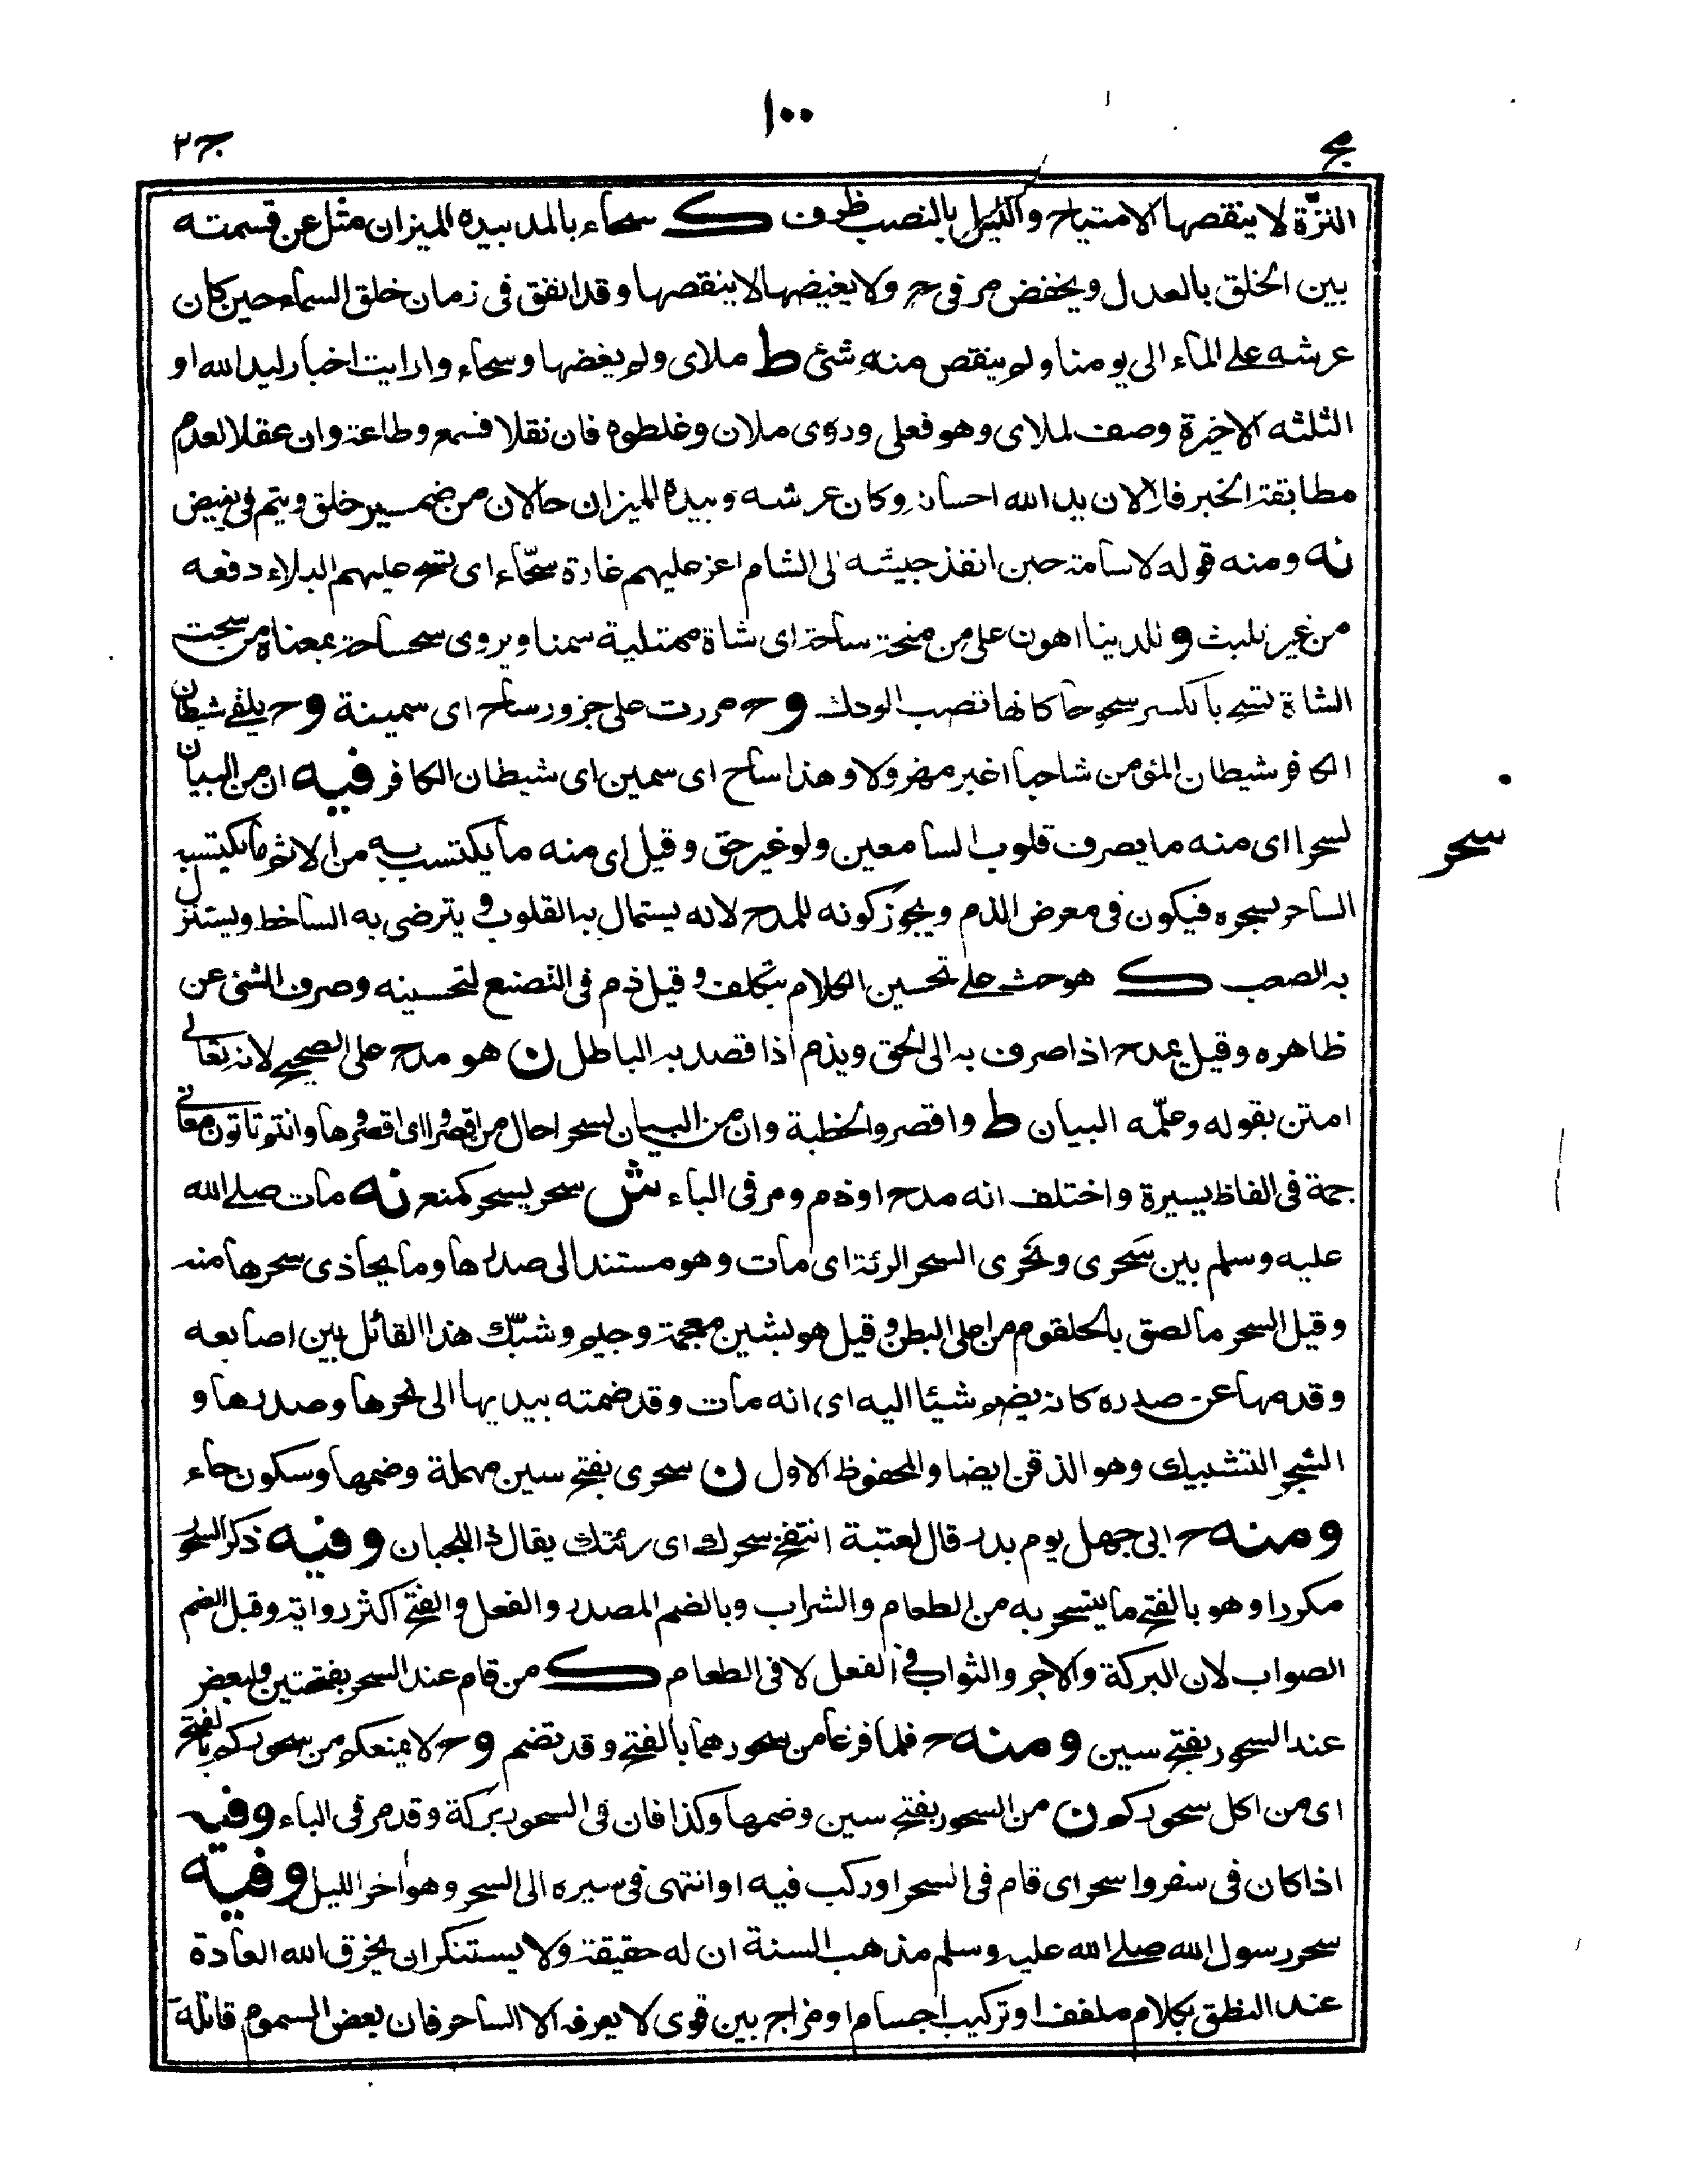 ١٠٠
ج٢
النزّة لا ينقصها الامتياح والليل بالنصب ظرف ك سحاء بالمد بيده الميزان مثل عن قسمته
بين الخلق بالعدل ويخفض مر في ح ولا يغيضها لا ينقصها وقد انفق في زمان خلق السماء حين كان
عرشه على الماء الى يومنا ولم ينقص منه شئ ط ملاى ولم يغضها وسحاء وارايت اخبار ليد الله او
الثلثه الاخيرة وصف لملاى وهو فعلى وروى ملان وغلطوه فان نقلا فسمع وطاعة وان عقلا لعدم
مطابقة الخبر فالان يد الله احسانه وكان عرشه وبيده الميزان حالان من ضمير خلق ويتم في يغيض
نه ومنه قوله لاسامة حين انفذ جيشه الى الشام اغر عليهم غارة سحّاء اى تسح عليهم البلاء دفعه
من غير تلبث و للدينا اهون على من منحة ساحة اى شاة ممتلية سمنا ويروى سحساحة بمعناه من سحت
الشاة تسح بالكسر سحوحا كانها تصب الودك وح مررت على جزور ساح اى سمينة وح يلقى شيطان
الكافر شيطان المؤمن شاحبا اغبر مهزولا وهذا ساح اى سمين اى شيطان الكافر فيه ان من البيان
سحر
لسحرا اى منه ما يصرف قلوب السامعين ولو غير حق وقيل اى منه ما يكتسب به من الاثم ما يكتسبه
الساحر بسحره فيكون في معرض الذم ويجوز كونه للمدح لانه يستمال به القلوب ويترضى به الساخط ويستنزل
به الصعب ك هو حث على تحسين الكلام بتكلف وقيل ذم في التصنع لتحسينه وصرف الشئ عن
ظاهره وقيل يمدح اذا صرف به الى الحق ويذم اذا قصد به الباطل ن هو مدح على الصحيح لانه تعالى
امتن بقوله وعلّمه البيان ط واقصروا الخطبة وان من البيان لسحر احال من اقصروا اى اقصروها وانتم تاتون معانى
جمة في الفاظ يسيرة واختلف انه مدح او ذم ومر في الباء ش سحر يسحر كمنع نه مات صلى الله
عليه وسلم بين سَحرى ونَحرى السحر الرئة اى مات وهو مستند الى صدرها وما يحاذى سحرها منه
وقيل السحر ما لصق بالحلقوم من اعلى البطن وقيل هو بشين معجمة وجيم وشبّك هذا القائل بين اصابعه
وقدمها عن صدره كانه يضم شيئا اليه اى انه مات وقد ضمته بيديها الى نحرها وصدرها و
الشجر التشبيك وهو الذقن ايضا والمحفوظ الاول ن سحرى بفتح سين مهملة وضمها وسكون حاء
ومنه ح ابى جهل يوم بدر قال لعتبة انتفخ سحرك اى رئتك يقال ذا للجبان وفيه ذكر السحور
مكررا وهو بالفتح ما يتسحر به من الطعام والشراب وبالضم المصدر والفعل والفتح اكثر رواية وقيل الضم
الصواب لان البركة والاجر والثواب في الفعل لا في الطعام ك من قام عند السحر بفتحتين ولبعض
عند السحور بفتح سين ومنه ح فلما فرغا من سحورهما بالفتح وقد تضم وح لا يمنعكم من سحوركم بالفتح
اى من اكل سحوركم ن من السحور بفتح سين وضمها وكذا فان في السحور بركة وقد مر في الباء وفيه
اذا كان في سفر واسحر اى قام في السحر او ركب فيه او انتهى في سيره الى السحر وهو اخر الليل وفيه
سحر رسول الله صلى الله عليه وسلم مذهب السنة ان له حقيقة ولا يستنكر ان يخرق الله العادة
عند النطق بكلام ملفف او تركيب اجسام او مزاج بين قوى لا يعرفه الا الساحر فان بعض السموم قاتلة